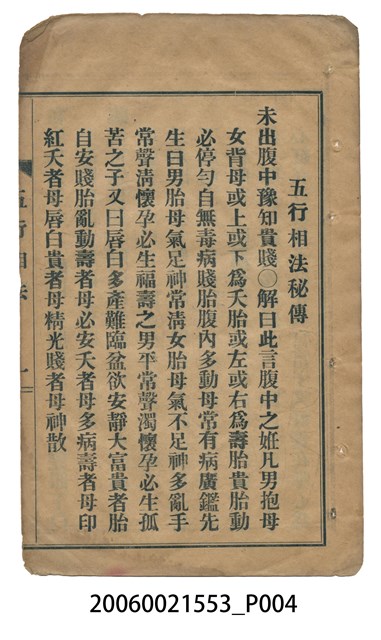 五行相法秘傳
未出腹中豫知貴賤〇解曰此言腹中之姙凡男抱母
女背母或上或下為夭胎或左或右為壽胎貴胎動
必停勻自無毒病賤胎腹內多動母常有病廣鑑先
生曰男胎母氣足神常淸女胎母氣不足神多亂手
常聲淸懷孕必生福壽之男平常聲濁懷孕必生孤
苦之子又曰唇白多產難臨盆欲安靜大富貴者胎
自安賤胎亂動壽者母必安夭者母多病壽者母印
紅夭者母唇白貴者母精光賤者母神散
五行相法
一
20060021553_P004